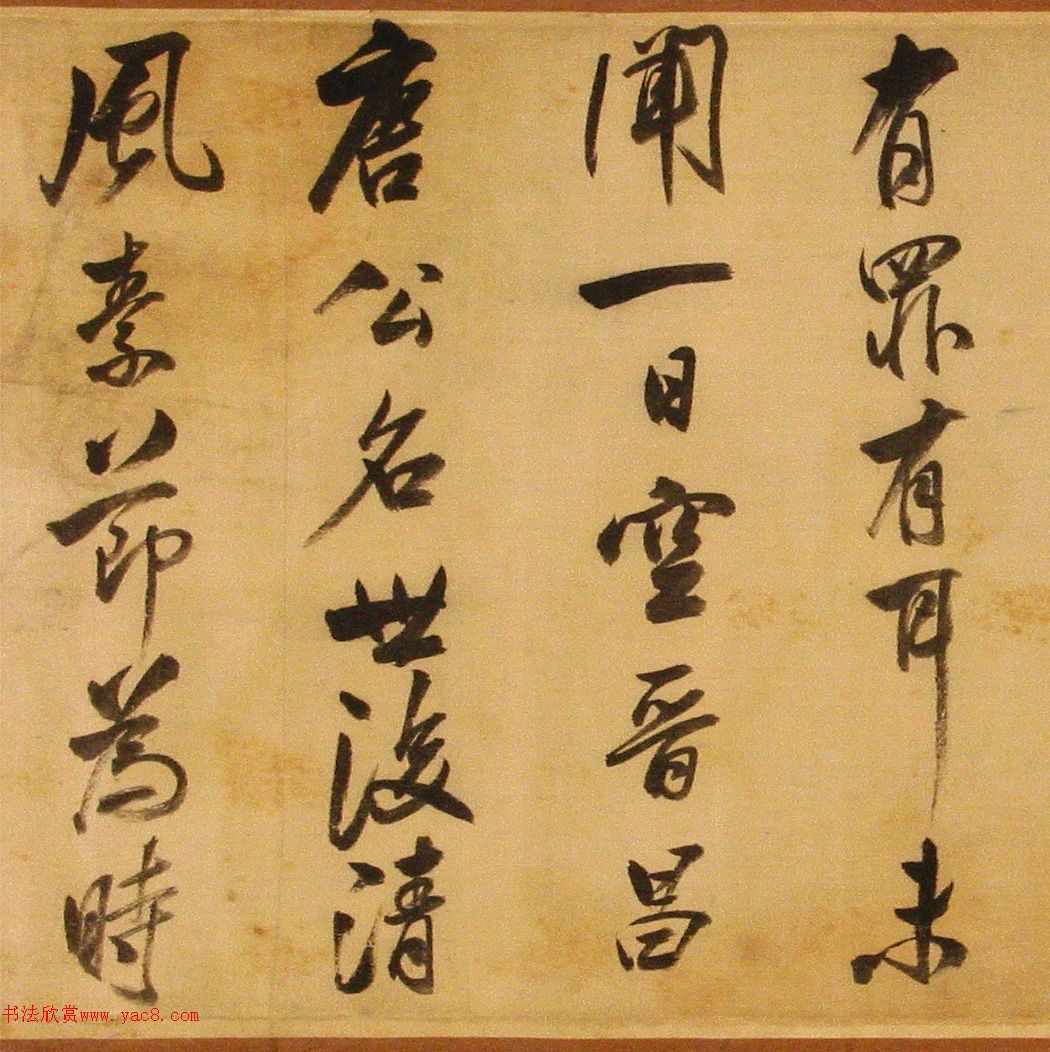 有罪有耳未
聞一日空晉昌
唐公名世後清
風素節為時
书法欣赏www.yac8.com